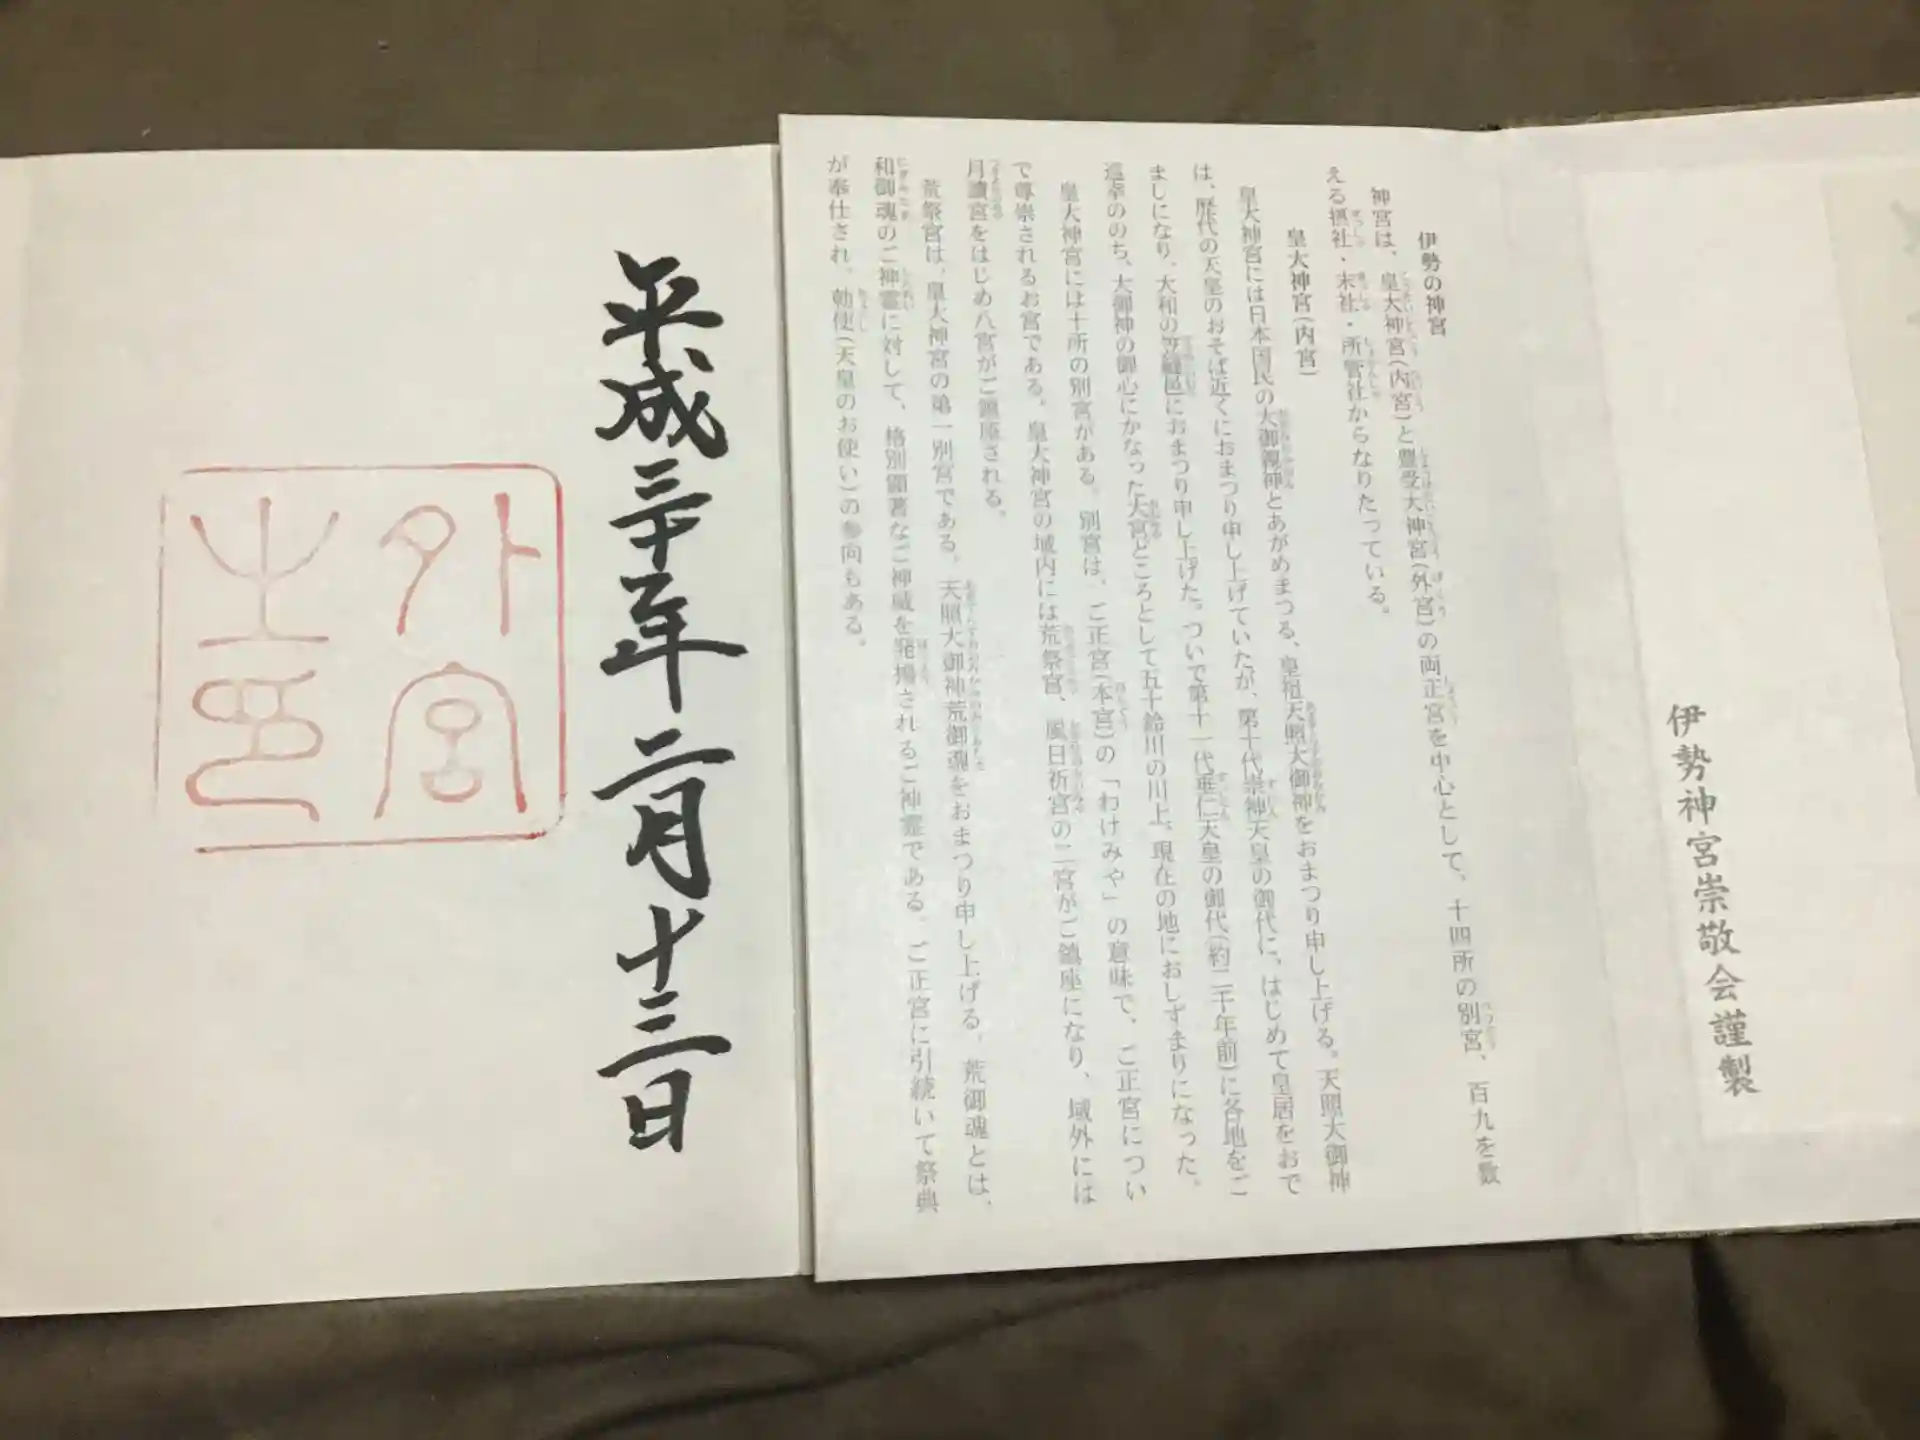 伊勢神宮崇敬会謹製
伊勢の神宮
神宮は、皇大神宮(内宮)と豊受大神宮(外宮)の両正宮を中心として、十四所の別宮、百九を数
える摂社・末社・所管社からなりたっている。
皇大神宮(内宮)
皇大神宮には日本国民の大御親神とあがめまつる、皇祖天照大御神をおまつり申し上げる。天照大御神
は、歴代の天皇のおそば近くにおまつり申し上げていたが、第十代崇神天皇の御代に、はじめて皇居をおで
ましになり、大和の笠縫邑におまつり申し上げた。ついで第十一代垂仁天皇の御代(約二千年前)に各地をご
巡幸ののち、大御神の御心にかなった大宮どころとして五十鈴川の川上、現在の地におしずまりになった。
皇大神宮には十所の別宮がある。別宮は、ご正宮(本宮)の「わけみや」の意味で、ご正宮につい
で尊崇されるお宮である。皇大神宮の域内には荒祭宮、風日祈宮の二宮がご鎮座になり、域外には
月讀宮をはじめ八宮がご鎮座される。
荒祭宮は、皇大神宮の第一別宮である。天照大御神荒御魂をおまつり申し上げる。荒御魂とは、
和御魂のご神霊に対して、格別顕著なご神威を発揚されるご神霊である。ご正宮に引続いて祭典
が奉仕され、勅使(天皇のお使い)の参向もある。
平成三十年二月十三日
外宮
之印